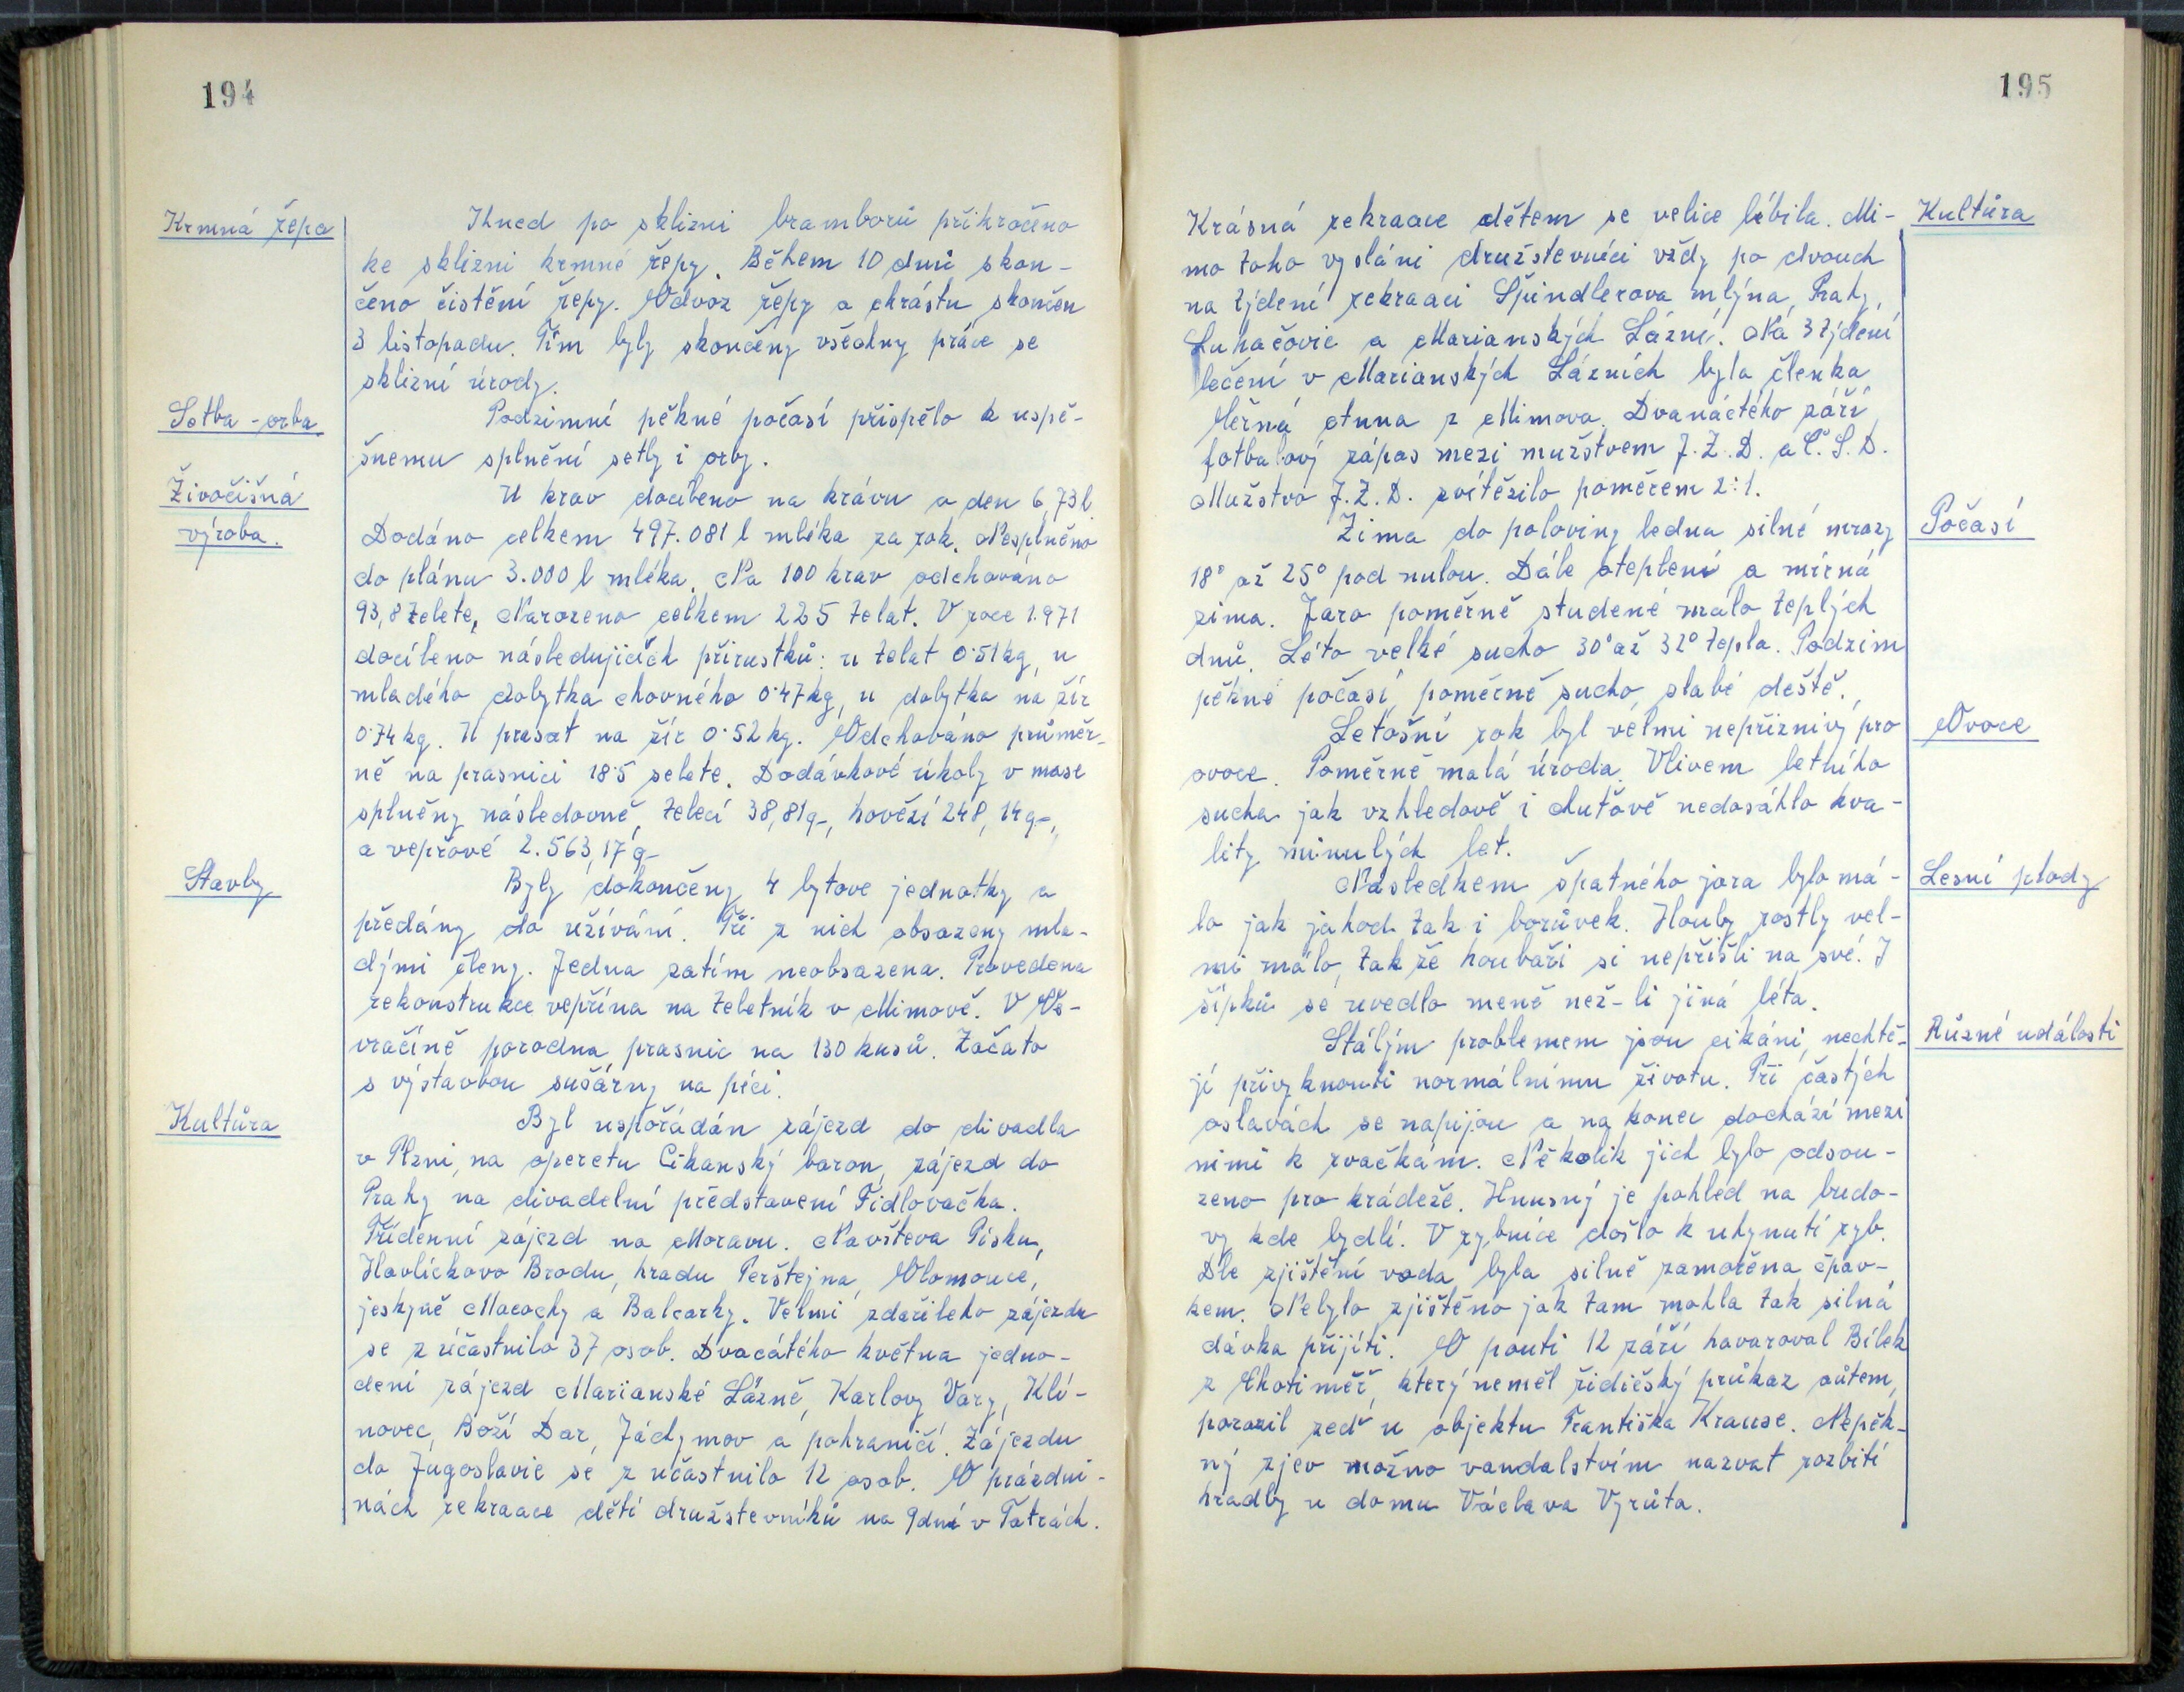 194
Krmná řepa
Ihned po sklizni bramborů přikročeno
ke sklizni krmné řepy. Během 10 dnů skon-
čeno čistění řepy. Odvoz řepy a chrástu skončen
3 listopadu. Tím byly skončeny všechny práce se
sklizní úrody.
Setba - orba.
Podzimní pěkné počasí přispělo k uspě-
šnemu splnění setby i orby.
Živočišná
výroba.
U krav docíleno na krávu a den 6,73 l.
Dodáno celkem 497.081 l mléka za rok. Nesplněno
do plánu 3.000 l mléka. Na 100 krav odchováno
93,8 telete, Narozeno celkem 225 telat. V roce 1.971
docíleno následujicích přirustků: u telat 0.51 kg, u
mladého dobytka chovného 0.47 kg, u dobytka na žír
0.74 kg. U prasat na žír 0.52 kg. Odchováno průměr-
ně na prasnici 18.5 selete. Dodávkové úkoly v mase
splněny následovně, telecí 38,81 q-, hovězí 248,14 q-,
a vepřové 2.563,17 q-
Stavby
Byly dokončeny 4 bytove jednotky a
předány do užívání. Tři z nich obsazeny mla-
dými členy. Jedna zatím neobsazena. Provedena
rekonstrukce vepřína na teletník v Mimově. V Me-
vračíně porodna prasnic na 130 kusů. Začato
s výstavbou sušárny na píci.
Kultůra
Byl uspořádán zájezd do divadla
v Plzni, na operetu Cikanský baron, zájezd do
Prahy na divadelní představení Fidlovačka.
Třídenní zájezd na Moravu. Navšteva Písku,
Havlíčkova Brodu, hradu Perštejna, Olomouce,
jeskyně Macochy a Balcarky. Velmi zdařileho zájezdu
se z účastnilo 37 osob. Dvacátého května jedno-
dení zájezd Marianské Lázně, Karlovy Vary, Klí-
novec, Boží Dar, Jáchymov a pohraničí. Zájezdu
do Jugoslavie se z účastnilo 12 osob. O prázdni-
nách rekraace dětí družstevníků na 9 dní v Tatrách.
195
Kultůra
Krásná rekraace dětem se velice líbila. Mi-
mo toho vysláni družstevníci vždy po dvouch
na týdení rekraaci Špindlerova mlýna, Prahy,
Luhačovic a Marianských Lázní. Na 3 týdení
lečení v Marianských Lázních byla členka
Anna z Mimova. Dvanáctého září
fotbalový zápas mezi mužstvem J.Z.D. a Č.S.D.
Mužstvo J.Z.D. zvítězilo poměrem 2:1.
Počasí
Zima do poloviny ledna silné mrazy
18° až 25° pod nulou. Dále oteplení a mírná
zima. Jaro poměrně studené málo teplých
dnů. Léto velké sucho 30° až 32° tepla. Podzim
pěkné počasí, poměrně sucho, slabé deště.
Ovoce
Letošní rok byl velmi nepříznivy pro
ovoce. Poměrně malá úroda. Vlivem letního
sucha jak vzhledově i chuťově nedosáhlo kva-
lity minulých let.
Lesní plody
Následkem špatného jara bylo má-
lo jak jahod tak i borůvek. Houby rostly vel-
mi málo, tak že houbaři si nepřišli na své. I
šípků se uvedlo meně než-li jiná léta.
Různé události
Stálým problemem jsou cikáni, nechtě-
jí přivyknouti normálnímu životu. Při častých
oslavách se napijou a na konec dochází mezi
nimi k rvačkám. Několik jich bylo odsou-
zeno pro krádeže. Hnusný je pohled na budo-
vy kde bydlí. V rybníce došlo k uhynutí ryb.
Dle zjištění voda byla silně zamořena čpav-
kem. Nebylo zjištěno jak tam mohla tak silná
dávka přijíti. O pouti 12 září havaroval Bílek
z Chotiměř, který neměl řidičský průkaz aůtem,
porazil zeď u objektu Františka Krause. Nepěk-
ný zjev možno vandalstvím nazvat rozbití
hradby u domu Václava Vyrůta.